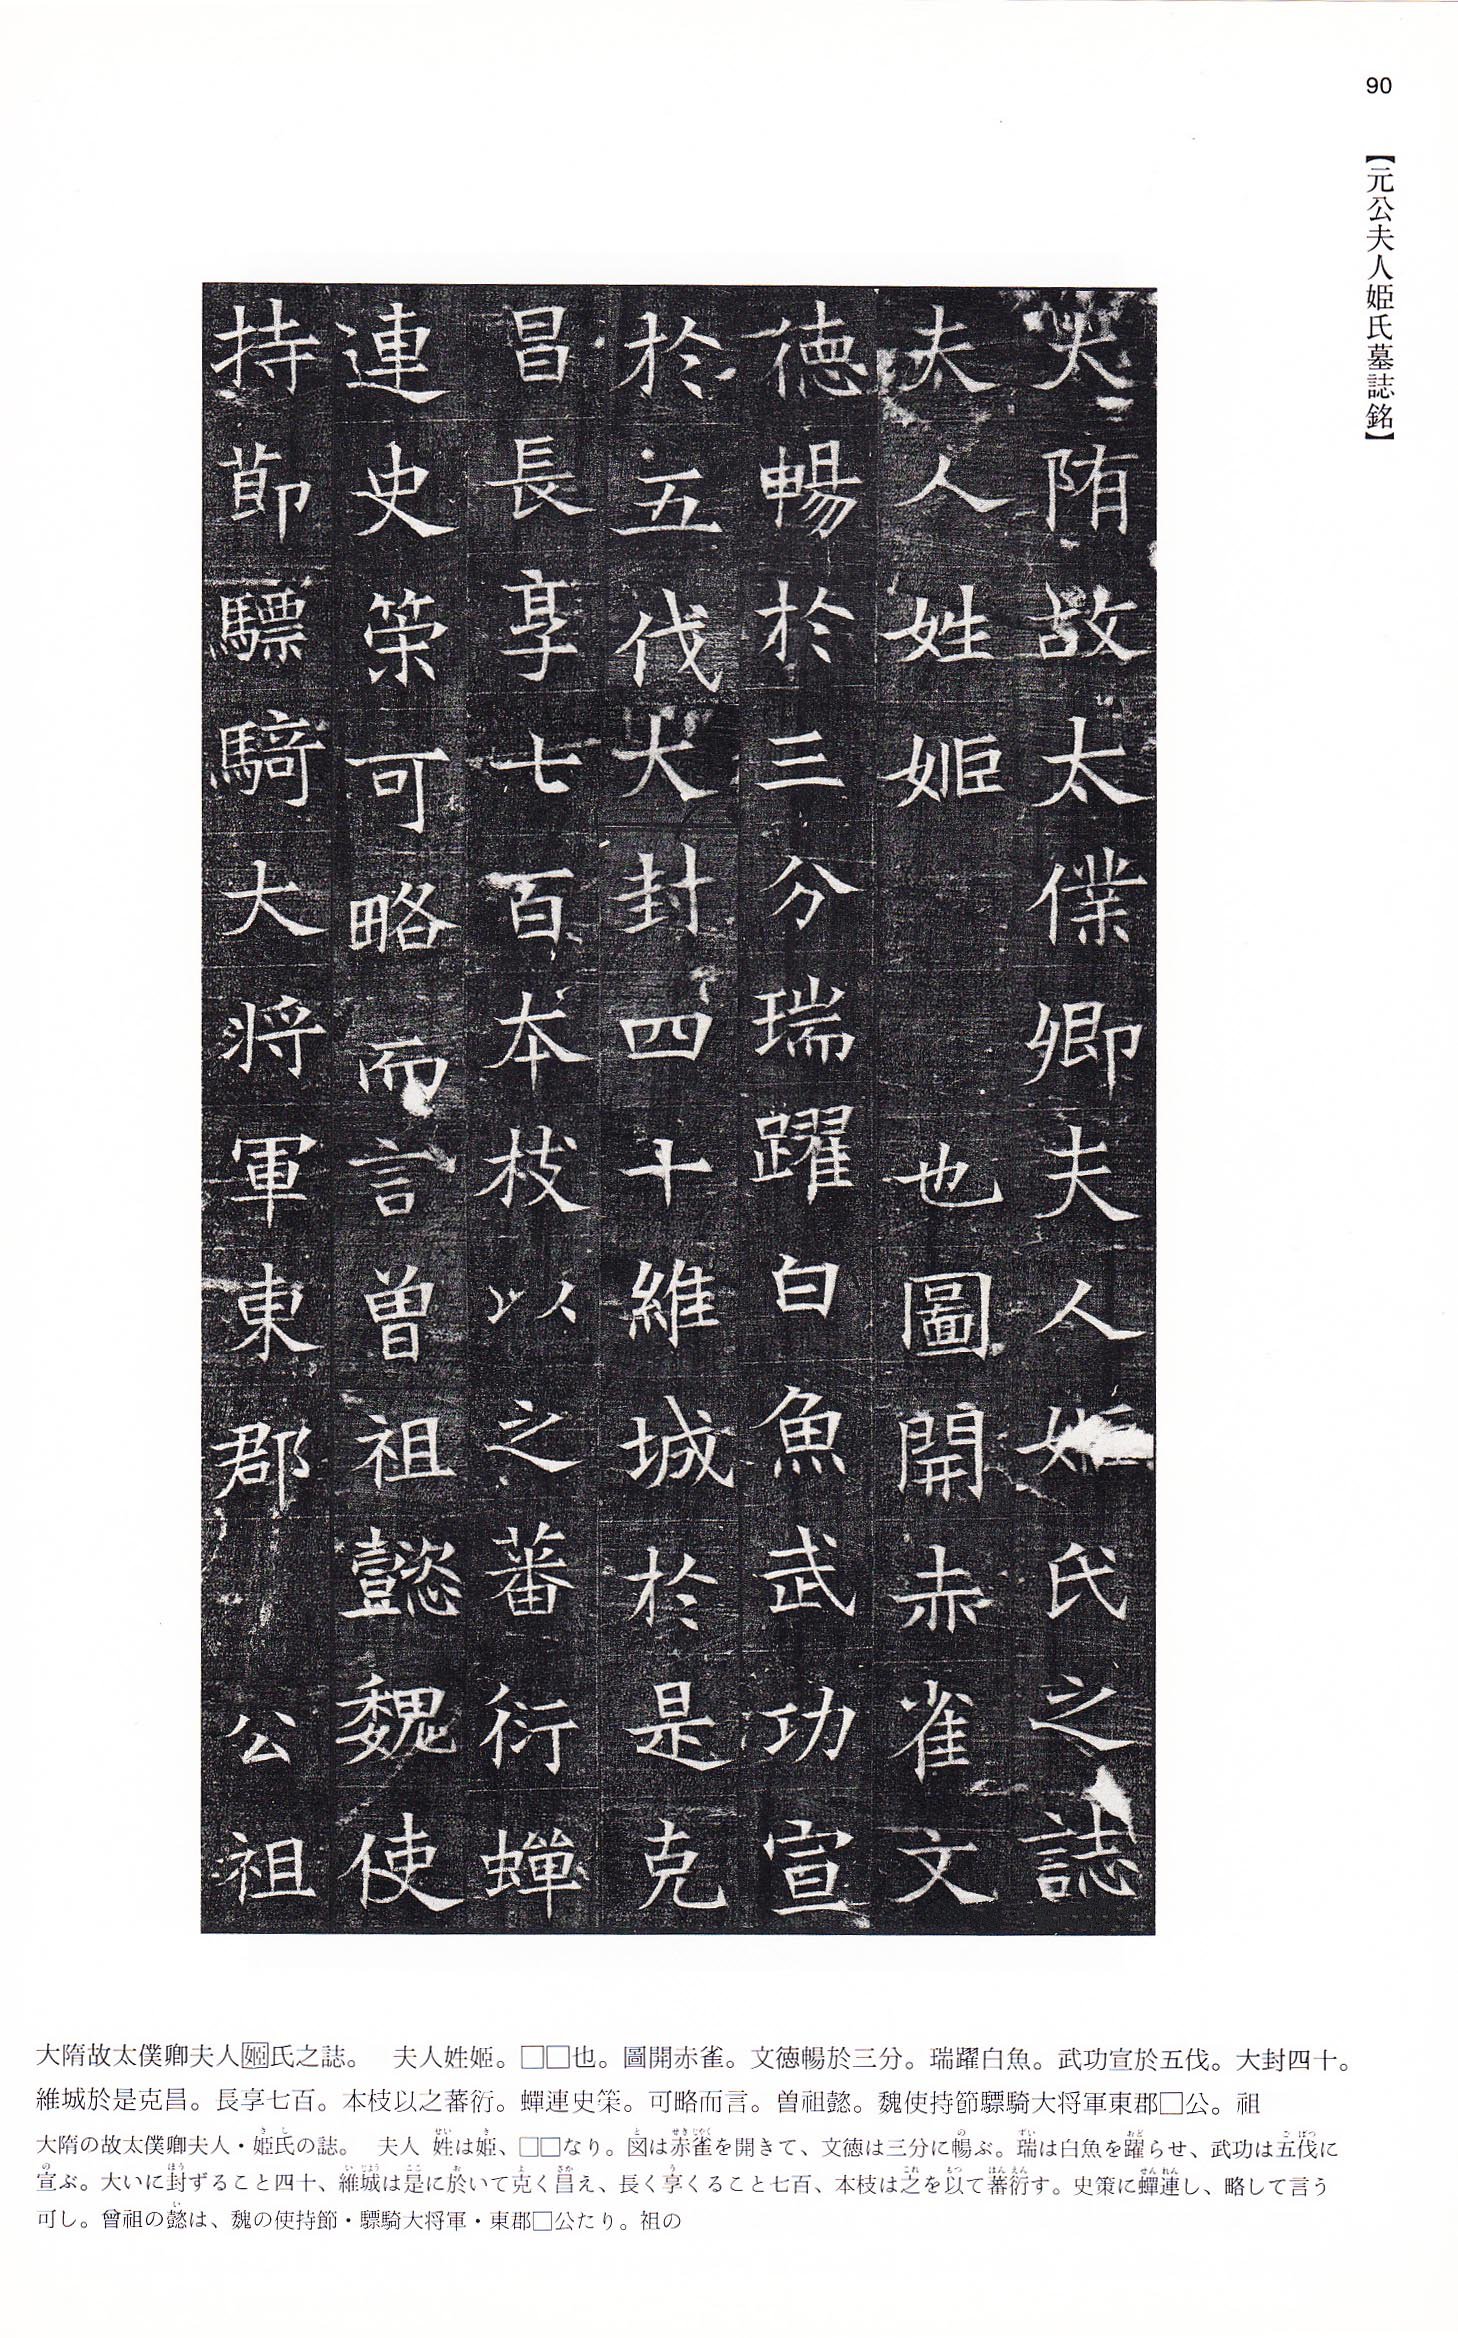 90
【元公夫人姫氏墓誌銘】
大隋故太僕卿夫人姬氏之誌
夫人姓姬也圖開赤雀文
徳暢於三分瑞躍白魚武功宣
於五伐大封四十維城於是克
昌長享七百本枝以之蕃衍蟬
連史筞可略而言曽祖懿魏使
持節驃騎大将軍東郡公祖
大隋故太僕卿夫人姬氏之誌。　夫人姓姬。□□也。圖開赤雀。文徳暢於三分。瑞躍白魚。武功宣於五伐。大封四十。
維城於是克昌。長享七百。本枝以之蕃衍。蟬連史筞。可略而言。曽祖懿。魏使持節驃騎大将軍東郡□公。祖
大隋の故太僕卿夫人・姫氏の誌。　夫人 姓は姫、□□なり。図は赤雀を開きて、文徳は三分に暢ぶ。瑞は白魚を躍らせ、武功は五伐に
宣ぶ。大いに封ずること四十、維城は是に於いて克く昌え、長く享くること七百、本枝は之を以て蕃衍す。史策に蟬連し、略して言う
可し。曾祖の懿は、魏の使持節・驃騎大将軍・東郡□公たり。祖の